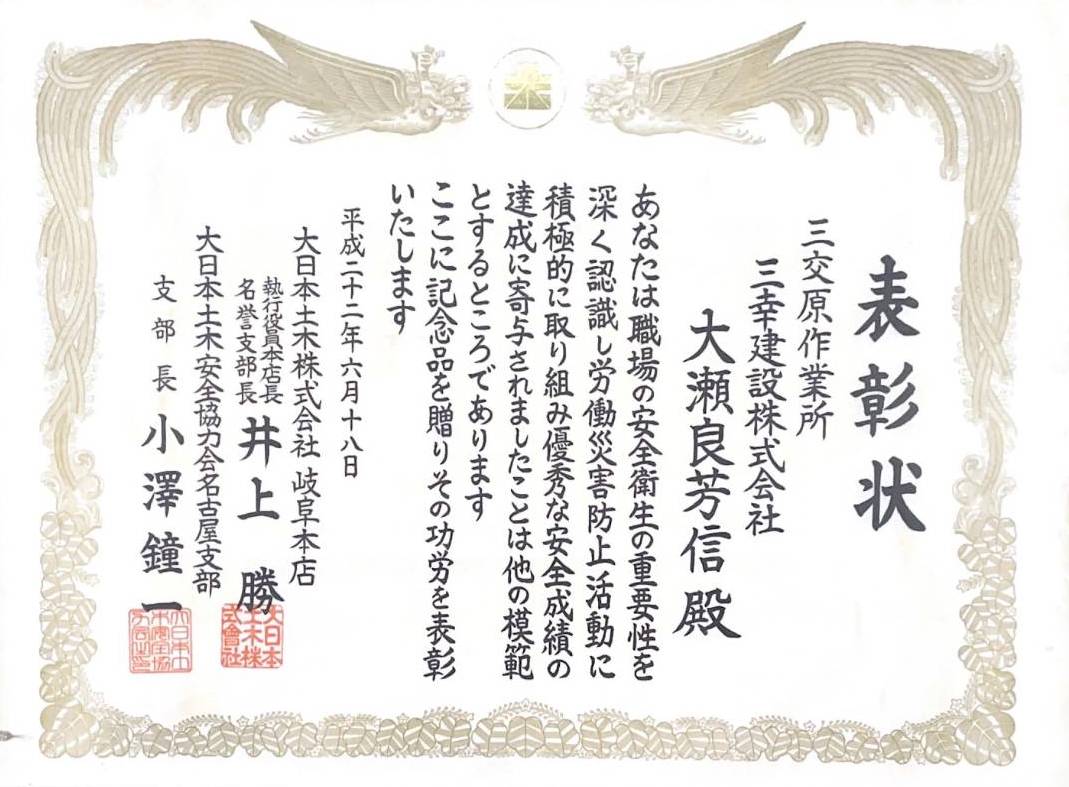 表彰状
三交原作業所
三幸建設株式会社
大瀬良芳信殿
あなたは職場の安全衛生の重要性を
深く認識し労働災害防止活動に
積極的に取り組み優秀な安全成績の
達成に寄与されましたことは他の模範
とするところであります
ここに記念品を贈りその功労を表彰
いたします
平成二十二年六月十八日
大日本土木株式会社 岐阜本店
執行役員本店長
名誉支部長
井上 勝
大日本土木株式會社
大日本土木安全協力会名古屋支部
支部長 小澤鐘一